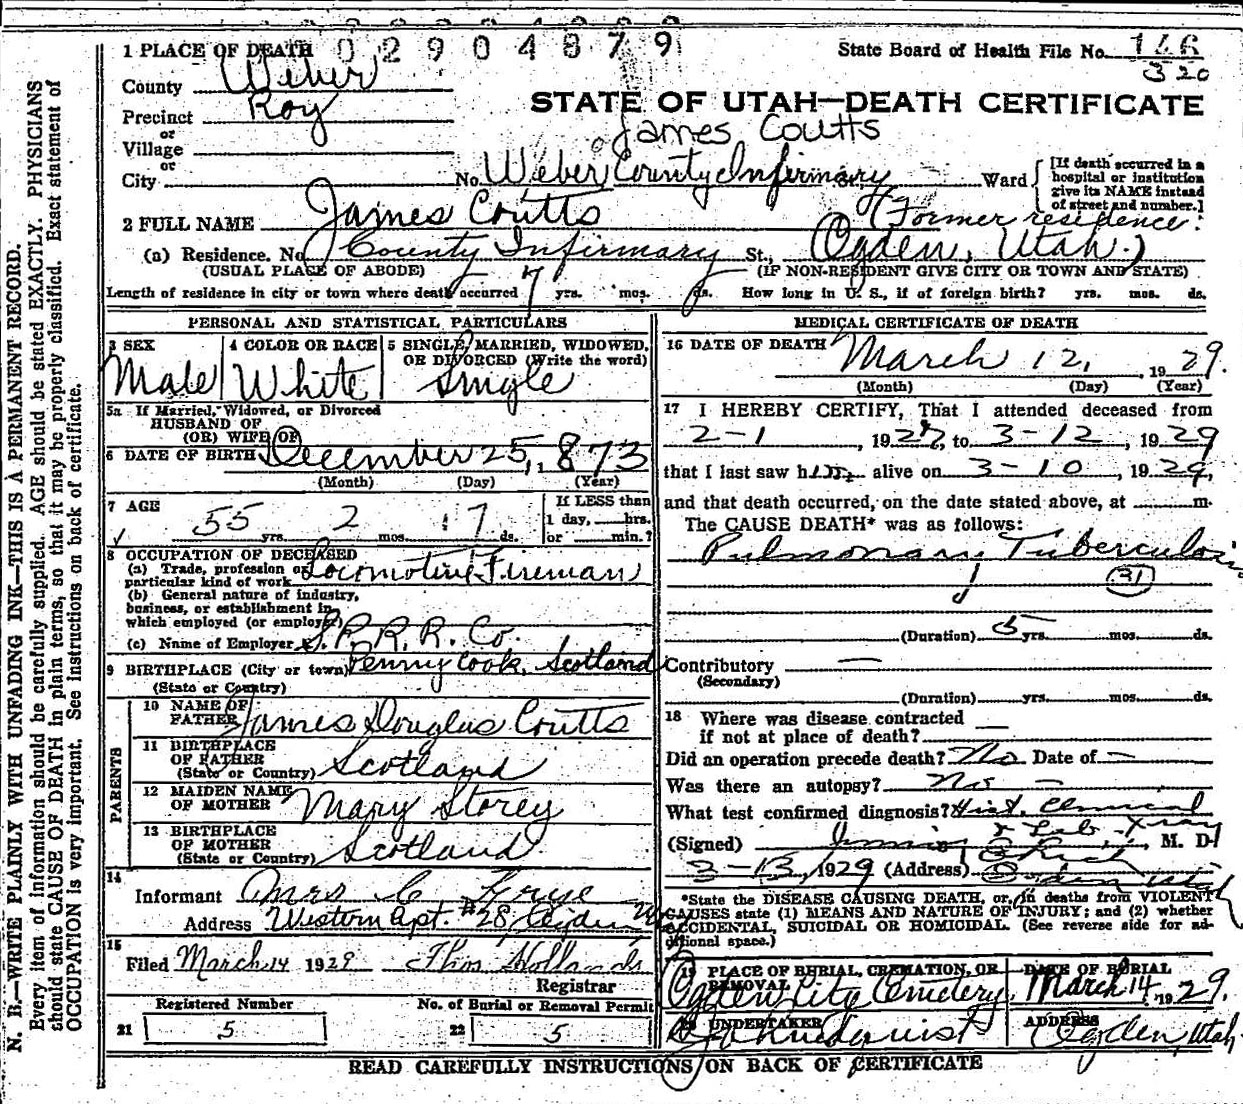 N. B.—WRITE PLAINLY WITH UNFADING INK—THIS IS A PERMANENT RECORD.
Every item of information should be carefully supplied. AGE should be stated EXACTLY. PHYSICIANS
should state CAUSE OF DEATH in plain terms, so that it may be properly classified. Exact statement of
OCCUPATION is very important. See instructions on back of certificate.
0 2 9 0 4 8 7 9
1 PLACE OF DEATH
State Board of Health File No. 146
320
County Weber
STATE OF UTAH—DEATH CERTIFICATE
Precinct Roy
or
James Coutts
Village
or
City No. Weber County Infirmary St., Ward
[If death occurred in a
hospital or institution
give its NAME instead
of street and number.]
2 FULL NAME James Coutts
(Former residence:
(a) Residence. No. County Infirmary St., Ogden, Utah.)
(USUAL PLACE OF ABODE) (IF NON-RESIDENT GIVE CITY OR TOWN AND STATE)
Length of residence in city or town where death occurred 7 yrs. mos. ds. How long in U. S., if of foreign birth? yrs. mos. ds.
PERSONAL AND STATISTICAL PARTICULARS
3 SEX
Male
4 COLOR OR RACE
White
5 SINGLE, MARRIED, WIDOWED,
OR DIVORCED (Write the word)
Single
5a If Married, Widowed, or Divorced
HUSBAND OF
(OR) WIFE OF
6 DATE OF BIRTH December 25, 1873
(Month) (Day) (Year)
7 AGE
55 yrs. 2 mos. 17 ds.
If LESS than
1 day, hrs.
or min.?
8 OCCUPATION OF DECEASED
(a) Trade, profession or
particular kind of work Locomotive Fireman
(b) General nature of industry,
business, or establishment in
which employed (or employer)
(c) Name of Employer S. P. R. R. Co.
9 BIRTHPLACE (City or town) Pennycook, Scotland
(State or Country)
PARENTS
10 NAME OF
FATHER James Douglas Coutts
11 BIRTHPLACE
OF FATHER
(State or Country) Scotland
12 MAIDEN NAME
OF MOTHER Mary Storey
13 BIRTHPLACE
OF MOTHER
(State or Country) Scotland
14
Informant Mrs C Frye
Address Western Apt. #28, Ogden
15
Filed March 14 1929 Thos Hollands
Registrar
Registered Number
21 5
No. of Burial or Removal Permit
22 5
MEDICAL CERTIFICATE OF DEATH
16 DATE OF DEATH March 12, 1929.
(Month) (Day) (Year)
17 I HEREBY CERTIFY, That I attended deceased from
2-1, 1927, to 3-12, 1929
that I last saw him alive on 3-10, 1929,
and that death occurred, on the date stated above, at m.
The CAUSE DEATH* was as follows:
Pulmonary Tuberculosis
31
(Duration) 5 yrs. mos. ds.
Contributory —
(Secondary)
(Duration) yrs. mos. ds.
18 Where was disease contracted
if not at place of death?
Did an operation precede death? No Date of —
Was there an autopsy? No —
What test confirmed diagnosis? Hist. Clinical
& Lab - Xray
(Signed) M. D.
3-13, 1929 (Address) Ogden Utah
*State the DISEASE CAUSING DEATH, or, in deaths from VIOLENT
CAUSES state (1) MEANS AND NATURE OF INJURY; and (2) whether
ACCIDENTAL, SUICIDAL OR HOMICIDAL. (See reverse side for ad-
ditional space.)
19 PLACE OF BURIAL, CREMATION, OR
REMOVAL
Ogden City Cemetery
DATE OF BURIAL
March 14, 1929.
20 UNDERTAKER
ADDRESS
Ogden, Utah
READ CAREFULLY INSTRUCTIONS ON BACK OF CERTIFICATE